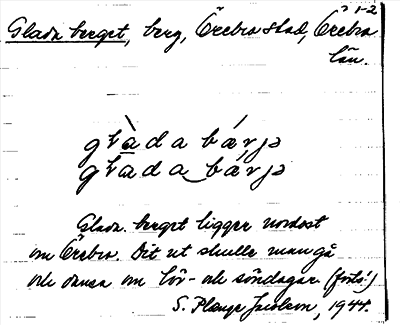 1-2
Glada berget, berg, Örebro stad, Örebro
län.
gɫàda bǽrjə
gɫàda bærjə
Glada berget ligger nordost
om Örebro. Dit ut skulle man gå
och dansa om lör- och söndagar. (forts!)
S. Plænge Jacobson, 1944.